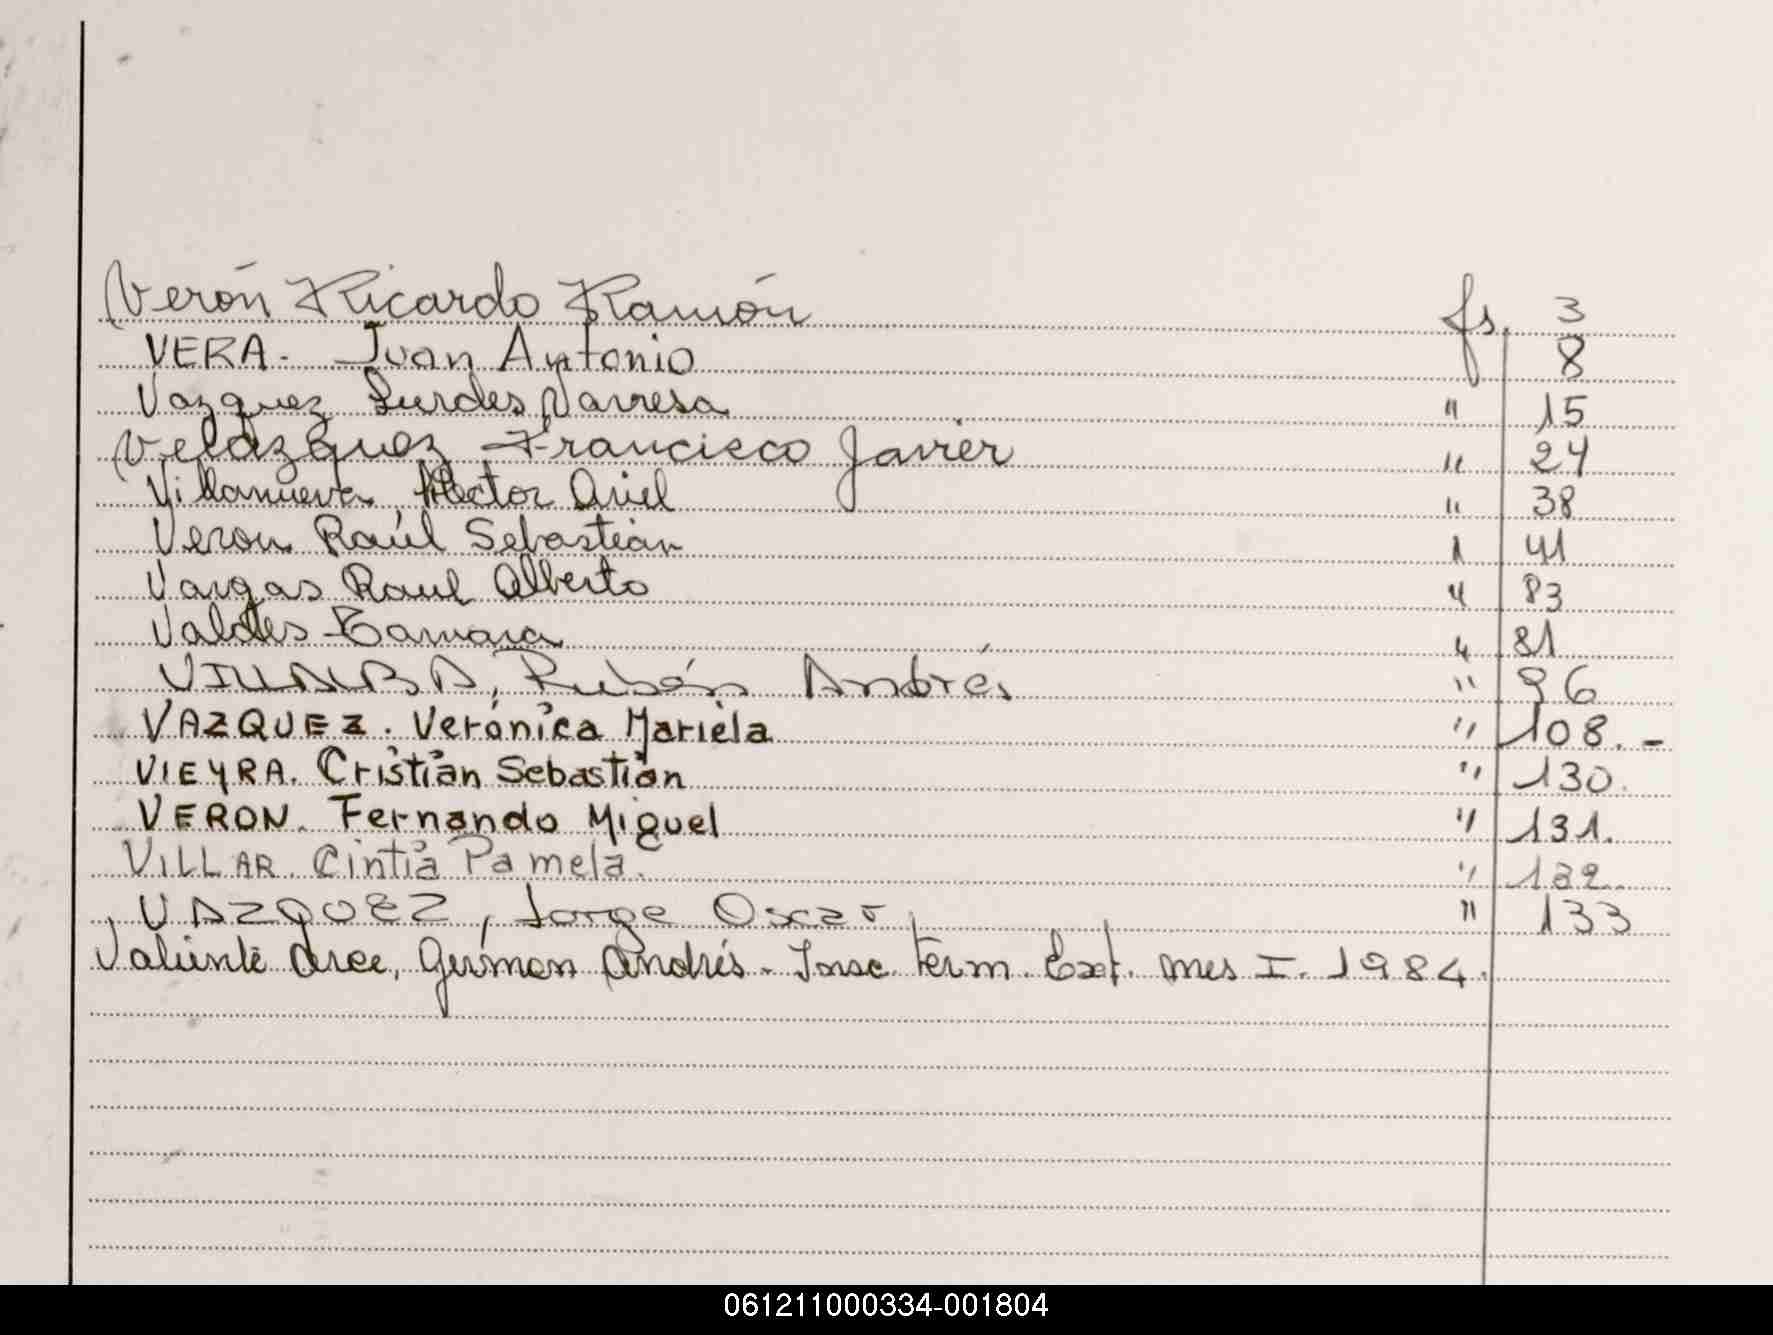 Verón Ricardo Ramón fs. 3
VERA. Juan Antonio f 8
Vazquez Lurdes Varresa " 15
Velázquez Francisco Javier " 24
Villanueva Hector Ariel " 38
Veron Raúl Sebastián " 41
Vargas Raul Alberto " 83
Valdes Tamara " 81
VILLALBA, Rubén Andrés " 96
VAZQUEZ. Verónica Mariela " 108.-
VIEYRA. Cristián Sebastián " 130.
VERON. Fernando Miguel " 131.
VILLAR. Cintia Pamela. " 132.
VAZQUEZ, Jorge Oscar " 133
Valiente Arce, Germán Andrés. Insc term. Ext. mes I. 1984.
061211000334-001804